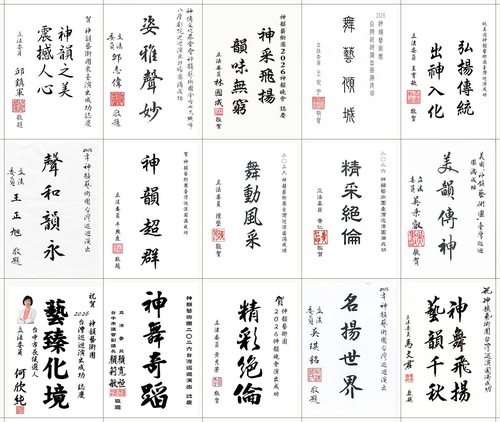 賀 神韻藝術團來臺演出成功 誌慶
神韻之美
震撼人心
立法委員 邱鎮軍 敬題
姿雅聲妙
立法委員 邱志偉 敬題
神韻藝術團2026神韻晚會 誌慶
神采飛揚
韻味無窮
立法委員 林國成 敬賀
2026 神韻藝術團
台灣巡迴演出圓滿成功
舞藝傾城
立法委員
敬賀
弘揚傳統
出神入化
立法委員 王育敏 敬賀
2026年神韻藝術團台灣巡迴演出
聲和韻永
立法委員 王正旭 敬題
神韻超群
立法委員
敬題
二〇二六神韻藝術團台灣巡迴演出圓滿成功
舞動風采
立法委員 陳瑩 敬賀
二〇二六 神韻藝術團臺灣巡演圓滿成功
精采絕倫
立法委員 黃仁 敬賀
美國神韻藝術團臺灣巡迴
圓滿成功
美韻傳神
立法委員 吳秉叡 敬賀
祝賀 神韻藝術團
2026 台灣巡迴演出成功 誌慶
藝臻化境
台中市長候選人
立法委員 何欣純
神韻藝術團二〇二六台灣巡迴演出 誌慶
神舞奇蹈
立法委員 顏寬恒
台中市議會副議長 顏莉敏 敬題
賀 神韻藝術團
2026神韻晚會台灣巡迴演出
精彩絕倫
立法委員 黃秀芳 敬賀
2026年神韻藝術團台灣巡迴演出
名揚世界
立法委員 吳琪銘 敬題
祝 神韻藝術團台灣巡演圓滿成功
神舞飛揚
藝韻千秋
立法委員 馬文君 敬題